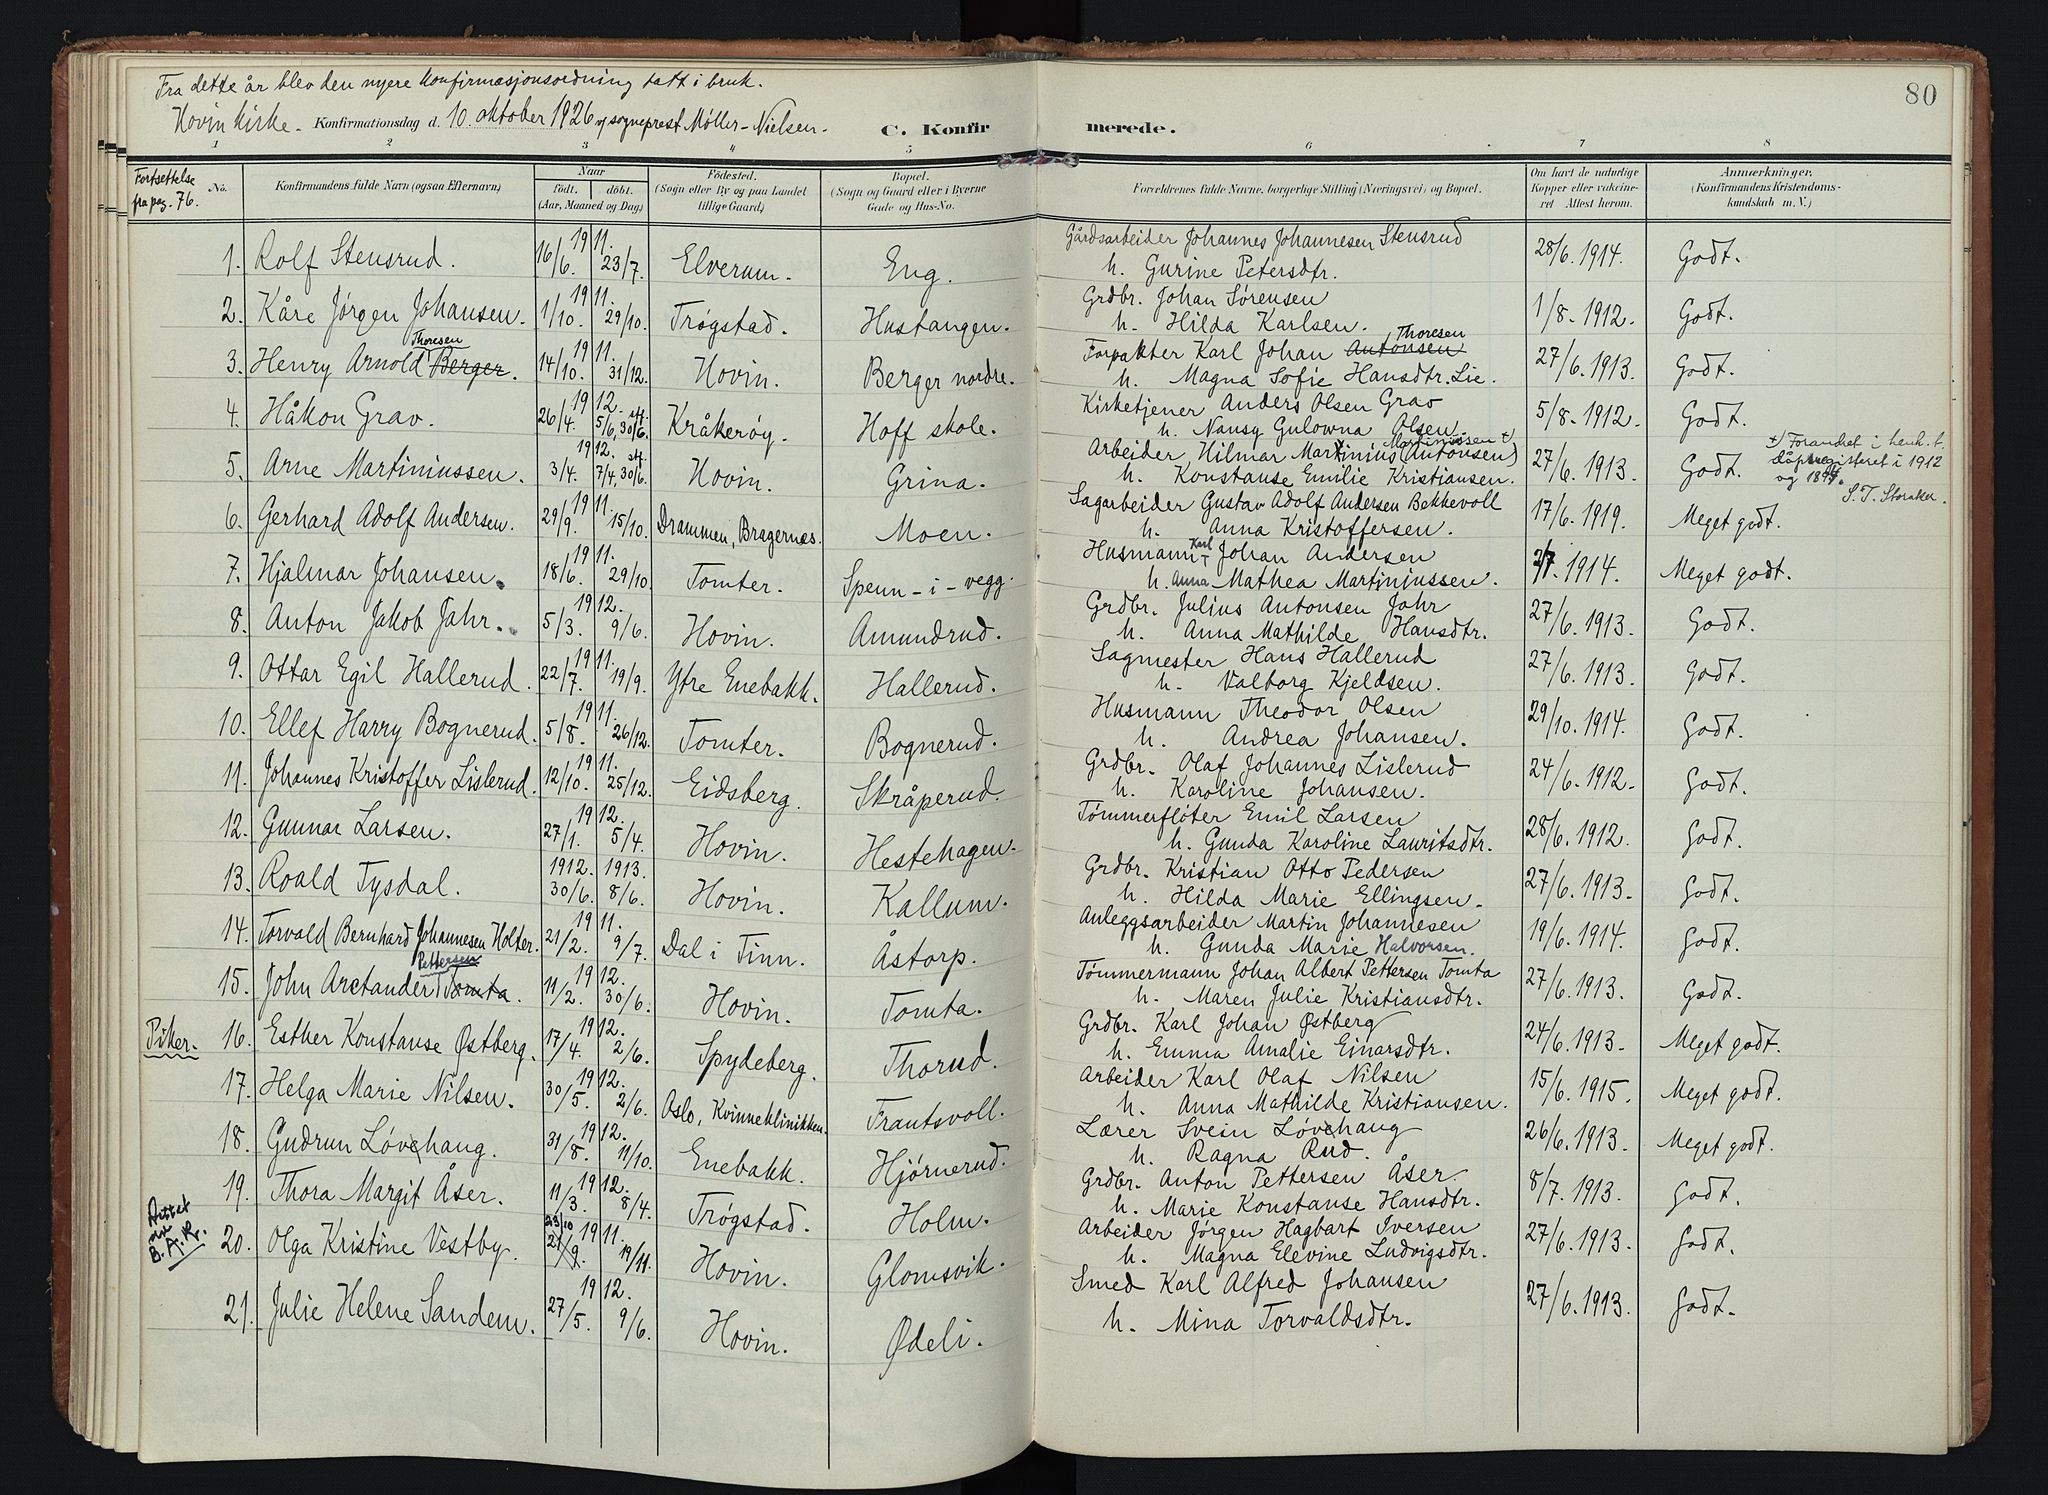 80
Fra dette år blev den nyere konfirmasjonsordning tatt i bruk.
Hovin kirke. Konfirmationsdag d. 10. oktober 1926 v/ sogneprest Møller-Nielsen.
C. Konfirmerede.
1 2 3 4 5 6 7 8
Fortsettelse fra pag. 76.
No. Konfirmandens fulde Navn (ogsaa Efternavn) Naar født. døbt. (Aar, Maaned og Dag) Fødested. (Sogn eller By og paa Landet tillige Gaard) Bopæl. (Sogn og Gaard eller i Byerne Gade og Hus-No. Forældrenes fulde Navne, borgerlige Stilling (Næringsvei) og Bopæl. Om havt de naturlige Kopper eller vakcineret Attest herom. Anmærkninger. (Konfirmandens Kristendomskundskab m. V.)
1. Rolf Stensrud. 1911. 16/6. 23/7. Elverum. Eng. Gårdsarbeider Johannes Johannesen Stensrud 28/6. 1914. Godt.
h. Gurine Petersdtr.
2. Kåre Jørgen Johansen. 1911. 1/10. 29/10. Trøgstad. Hustangen. Grdbr. Johan Sørensen 1/8. 1912. Godt.
h. Hilda Karlsen.
3. Henry Arnold Berger. Thoresen 1911. 14/10. 31/12. Hovin. Berger nordre. Forpakter Karl Johan Antonsen Thoresen 27/6. 1913. Godt.
h. Magna Sofie Hansdtr. Lie.
4. Håkon Grav. 1912. 26/4. 5/6, stf. 30/6. Kråkerøy. Hoff skole. Kirketjener Anders Olsen Grav 5/8. 1912. Godt.
h. Nansy Gulowna Olsen.
5. Arne Martiniussen. 1912. 3/4. 7/4, stf. 30/6. Hovin. Grina. Arbeider Hilmar Martinius (Antonsen) Martinussen +) 27/6. 1913. Godt. +) Forandret i henh. t. dåpsregisteret i 1912 og S. T. Storaker.
h. Konstanse Emilie Kristiansen.
6. Gerhard Adolf Andersen. 1911. 29/9. 15/10. Drammen, Bragernæs. Moen. Sagarbeider Gustav Adolf Andersen Bekkevoll 17/6. 1919. Meget godt.
h. Anna Kristoffersen.
7. Hjalmar Johansen. 1911. 18/6. 29/10. Tomter. Spenn-i-vegg. Husmann Karl Johan Andersen 2/7. 1914. Meget godt.
h. Anna Mathea Martiniussen.
8. Anton Jakob Jahr. 1912. 5/3. 9/6. Hovin. Amundrud. Grdbr. Julius Antonsen Jahr 27/6. 1913. Godt.
h. Anna Mathilde Hansdtr.
9. Ottar Egil Hallerud. 1911. 22/7. 19/9. Ytre Enebakk. Hallerud. Sagmester Hans Hallerud 27/6. 1913. Godt.
h. Valborg Kjeldsen.
10. Ellef Harry Bognerud. 1911. 5/8. 26/12. Tomter. Bognerud. Husmann Theodor Olsen 29/10. 1914. Godt.
h. Andrea Johansen.
11. Johannes Kristoffer Lislerud. 1911. 12/10. 25/12. Eidsberg. Skråperud. Grdbr. Olaf Johannes Lislerud 24/6. 1912. Godt.
h. Karoline Johansen.
12. Gunnar Larsen. 1912. 27/1. 5/4. Hovin. Hestehagen. Tømmerfløter Emil Larsen 28/6. 1912. Godt.
h. Gunda Karoline Lauritsdtr.
13. Roald Tysdal. 1912. 1913. 30/6. 8/6. Hovin. Kallum. Grdbr. Kristian Otto Pedersen 27/6. 1913. Godt.
h. Hilda Marie Ellingsen.
14. Torvald Bernhard Johannesen Holter. 1911. 21/2. 9/7. Dal i Tinn. Åstorp. Anleggsarbeider Martin Johannesen 19/6. 1914. Godt.
h. Gunda Marie Halvorsen.
15. John Arctander Tomta. Pettersen 1912. 11/2. 30/6. Hovin. Tomta. Tømmermann Johan Albert Pettersen Tomta 27/6. 1913. Godt.
h. Maren Julie Kristiansdtr.
Piker. 16. Esther Konstanse Østberg. 1912. 17/4. 2/6. Spydeberg. Thorud. Grdbr. Karl Johan Østberg 24/6. 1913. Meget godt.
h. Emma Amalie Einarsdtr.
17. Helga Marie Nilsen. 1912. 30/5. 2/6. Oslo, Kvinneklinikken. Frantsvoll. Arbeider Karl Olaf Nilsen 15/6. 1915. Meget godt.
h. Anna Mathilde Kristiansen.
18. Gudrun Løvehaug. 1912. 31/8. 11/10. Enebakk. Hjørnerud. Lærer Svein Løvehaug 26/6. 1913. Meget godt.
h. Ragna Rud.
19. Thora Margit Åser. 1912. 11/3. 8/4. Trøgstad. Holm. Grdbr. Anton Pettersen Åser. 8/7. 1913. Godt.
h. Marie Konstanse Hansdtr.
20. Olga Kristine Vestby. 1911. 23/10 21/9. 19/11. Hovin. Glomsvik. Arbeider Jørgen Hagbart Iversen 27/6. 1913. Godt.
h. Magna Elevine Ludvigsdtr.
21. Julie Helene Sandem. 1912. 27/5. 9/6. Hovin. Ødeli. Smed Karl Alfred Johansen 27/6. 1913. Godt.
h. Mina Torvaldsdtr.